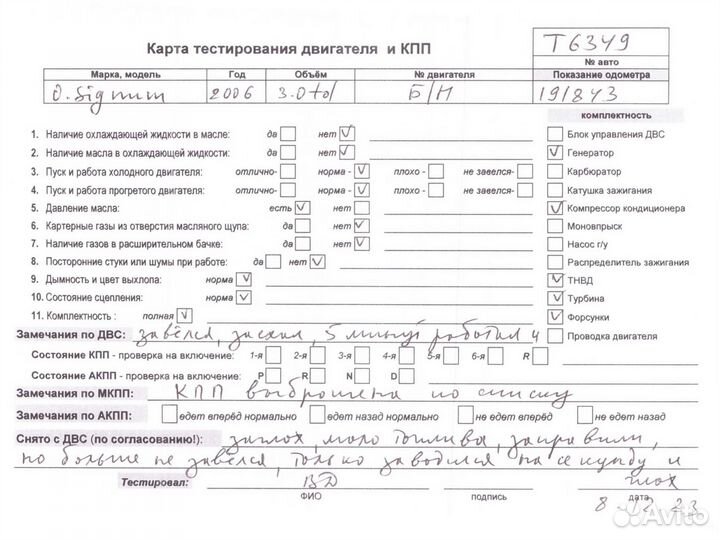 Карта тестирования двигателя и КПП
T6349
№ авто
Марка, модель Год Объём № двигателя Показание одометра
O. Signum 2006 3.0td Б/Н 191843
комплектность
1. Наличие охлаждающей жидкости в масле: да нет V Блок управления ДВС
2. Наличие масла в охлаждающей жидкости: да нет V V Генератор
3. Пуск и работа холодного двигателя: отлично- норма - V плохо - не завелся- Карбюратор
4. Пуск и работа прогретого двигателя: отлично- норма - V плохо - не завелся- Катушка зажигания
5. Давление масла: есть V нет V Компрессор кондиционера
6. Картерные газы из отверстия масляного щупа: да нет V Моновпрыск
7. Наличие газов в расширительном бачке: да нет V Насос г/у
8. Посторонние стуки или шумы при работе: да нет V Распределитель зажигания
9. Дымность и цвет выхлопа: норма V V ТНВД
10. Состояние сцепления: норма V V Турбина
11. Комплектность : полная V V Форсунки
Замечания по ДВС: завёлся, 5 минут работал и Проводка двигателя
Состояние КПП - проверка на включение: 1-я 2-я 3-я 4-я 5-я 6-я R
Состояние АКПП - проверка на включение: P R N D
Замечания по МКПП: КПП выброшена по списку
Замечания по АКПП: едет вперёд нормально едет назад нормально не едет вперёд не едет назад
Снято с ДВС (по согласованию!): заглох, мало топлива, заправили,
но больше не завёлся, только заводился на секунду и
Тестировал: ВД глох
ФИО подпись дата
8 12 23
Avito